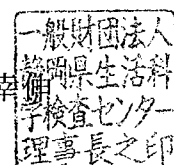 一般財団法人
静岡県生活科
学検査センター
理事長之印
幸伸